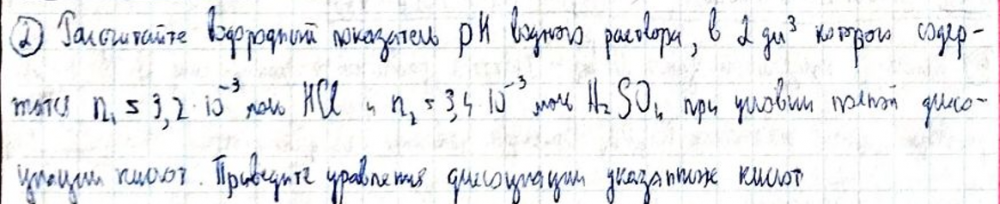 ② Рассчитайте водородный показатель pH водного раствора, в 2 дм³ которого содер-
жатся n₁ = 3,2 · 10⁻³ моль HCl и n₂ = 3,4 10⁻³ моль H₂SO₄ при условии полной диссо-
циации кислот. Приведите уравнения диссоциации указанных кислот